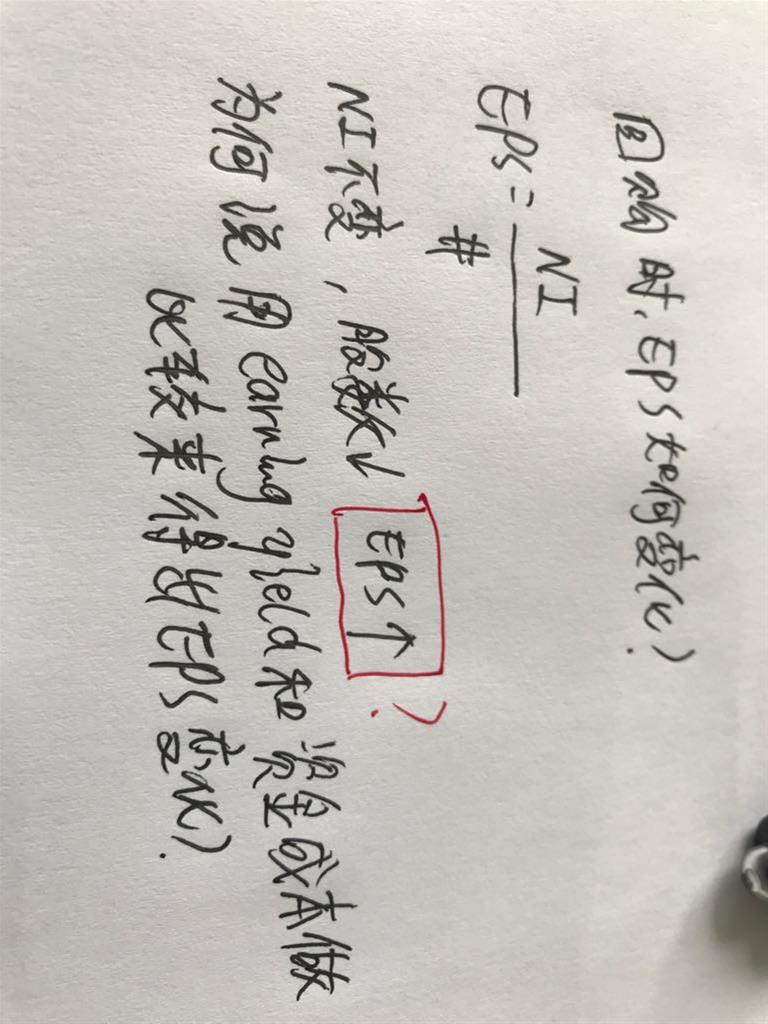 回购时,EPS如何变化?
EPS = NI
#
NI不变,股数↓ EPS↑ ?
为何说用earning yield和资金成本做
比较来得出EPS变化?